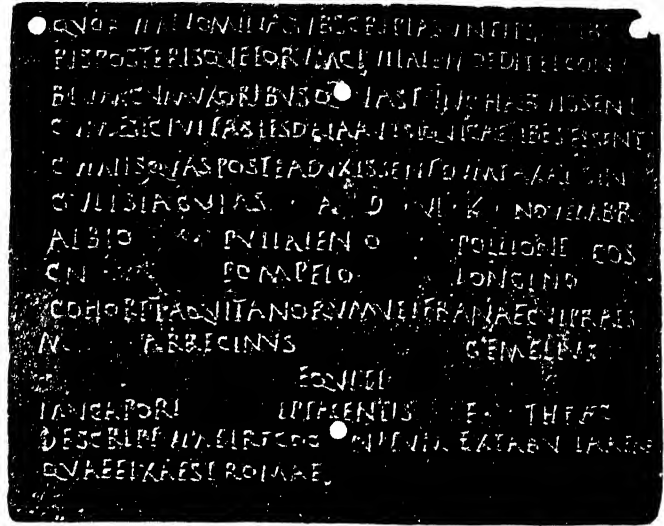 QVORVM NOMINA SVBSCRIPTA SVNT IPSIS LIBE
RIS POSTERISQVE EORVM CIVITATEM DEDIT ET CONV
BIVM CVM VXORIBVS QVAS TVNC HABVISSENT
CVM EST CIVITAS IIS DATA AVT SIQVI CAELIBES ESSENT
CVM IIS QVAS POSTEA DVXISSENT DVMTAXAT SIN
GVLI SINGVLAS A D VI K NOVEMBR
ALBIO PVLLAIENO POLLIONE COS
CN POMPEIO LONGINO
COHORT AQVITANORVM VETERANAE CVI PRAEST
M ARRECINVS GEMELLVS
EQVITI
MVCAPORI EPTACENTIS F THRAC
DESCRIPTVM ET RECOGNITVM EX TABVLA AENEA
QVAE FIXA EST ROMAE